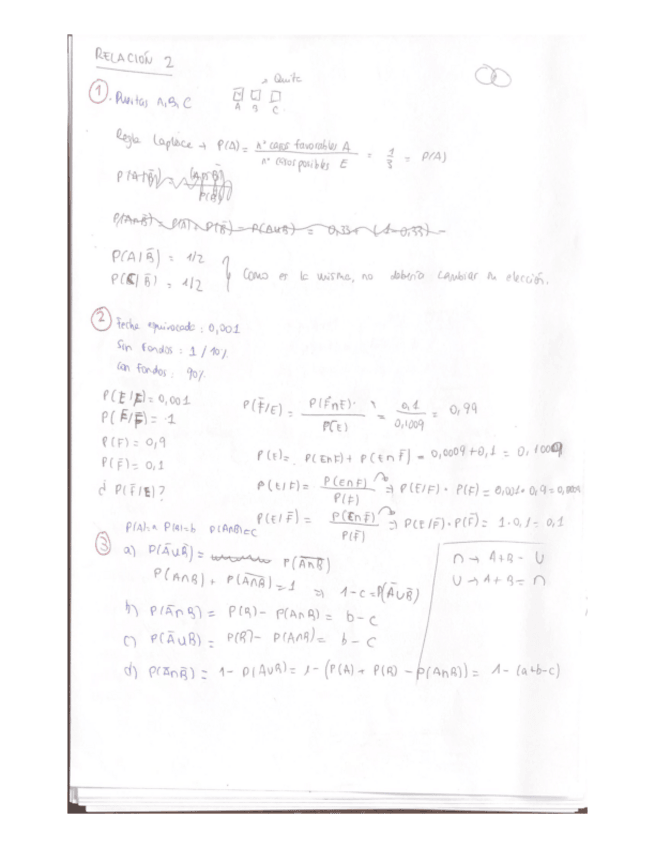 RELACIÓN 2
① Puertas A, B, C
Quita
A B C
Regla Laplace → P(A) = nº casos favorables A / nº casos posibles E = 1/3 = P(A)
P(A/B̄) = 1/2
P(C/B̄) = 1/2
Como es lo mismo, no debería cambiar su elección.
② Fecha equivocada: 0,001
Sin fondos: 1 / 10%
Con fondos: 90%
P(E/F) = 0,001
P(E/F̄) = 1
P(F) = 0,9
P(F̄) = 0,1
¿P(F̄/E)?
P(F̄/E) = P(F̄∩E) / P(E) = 0,1 / 0,1009 = 0,99
P(E) = P(E∩F) + P(E∩F̄) = 0,0009 + 0,1 = 0,1009
P(E/F) = P(E∩F) / P(F) ⇒ P(E/F) · P(F) = 0,001 · 0,9 = 0,0009
P(E/F̄) = P(E∩F̄) / P(F̄) ⇒ P(E/F̄) · P(F̄) = 1 · 0,1 = 0,1
P(A)=a P(B)=b P(A∩B)=c
③ a) P(Ā∪B̄) = P(A∩B)‾
P(A∩B) + P(A∩B)‾ = 1 ⇒ 1-c = P(Ā∪B̄)
∩ → A+B - ∪
∪ → A+B - ∩
b) P(Ā∩B) = P(B) - P(A∩B) = b - c
c) P(Ā∪B) = P(B) - P(A∩B) = b - c
d) P(Ā∩B̄) = 1 - P(A∪B) = 1 - (P(A) + P(B) - P(A∩B)) = 1 - (a+b-c)